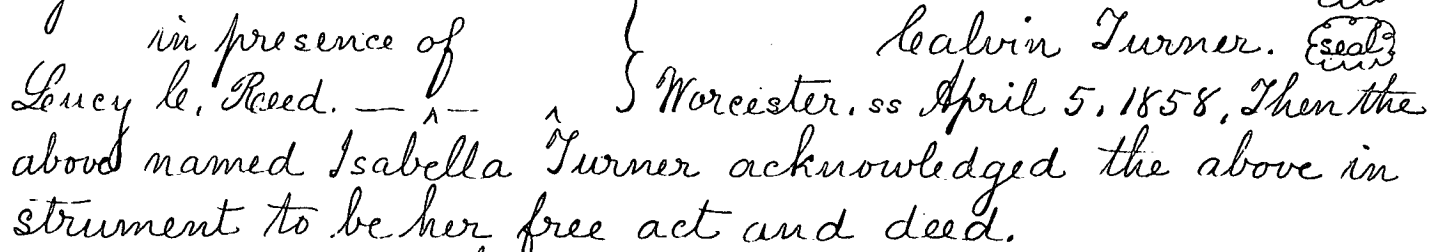 in presence of } Calvin Turner. seal
Lucy C. Reed. — — } Worcester. ss April 5, 1858, Then the
above named Isabella Turner acknowledged the above in
strument to be her free act and deed.